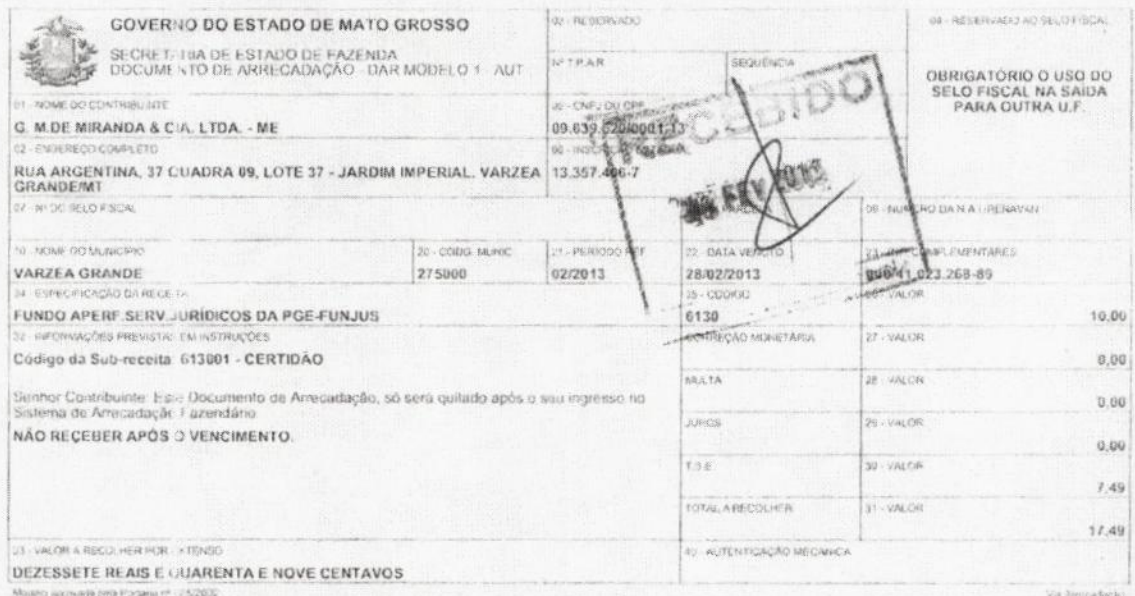 GOVERNO DO ESTADO DE MATO GROSSO
SECRETARIA DE ESTADO DE FAZENDA
DOCUMENTO DE ARRECADAÇÃO - DAR MODELO 1 - AUT
02 - RESERVADO
Nº T.P.A.R
SEQUÊNCIA
04 - RESERVADO AO SELO FISCAL
OBRIGATÓRIO O USO DO
SELO FISCAL NA SAÍDA
PARA OUTRA U.F.
01 - NOME DO CONTRIBUINTE
G. M.DE MIRANDA & CIA. LTDA. - ME
CNPJ OU CPF
09.639.620/0001-13
RECEBIDO
FEV 2013
02 - ENDEREÇO COMPLETO
RUA ARGENTINA, 37 CUADRA 09, LOTE 37 - JARDIM IMPERIAL. VARZEA
GRANDE/MT
13.357.406-7
07 - Nº DO SELO FISCAL
PARCELA
09 - NUMERO DA N.A.I./RENAVAN
10 - NOME DO MUNICIPIO
VARZEA GRANDE
20 - CODIG. MUNIC
275000
21 - PERIODO REF
02/2013
22 - DATA VENCTO
28/02/2013
23 - INF. COMPLEMENTARES
000/41.023.268-89
24 - ESPECIFICAÇÃO DA RECEITA
FUNDO APERF.SERV.JURÍDICOS DA PGE-FUNJUS
25 - CODIGO
6130
VALOR
10,00
32 - INFORMAÇÕES PREVISTAS EM INSTRUÇÕES
Código da Sub-receita: 613001 - CERTIDÃO
CORREÇÃO MONETÁRIA
27 - VALOR
0,00
Senhor Contribuinte: Este Documento de Arrecadação, só será quitado após o seu ingresso no
Sistema de Arrecadação Fazendário
NÃO RECEBER APÓS O VENCIMENTO.
MULTA
28 - VALOR
0,00
JUROS
29 - VALOR
0,00
T.S.E.
30 - VALOR
7,49
TOTAL A RECOLHER
31 - VALOR
17,49
33 - VALOR A RECOLHER POR EXTENSO
DEZESSETE REAIS E QUARENTA E NOVE CENTAVOS
40 - AUTENTICAÇÃO MECANICA
Modelo aprovado pela Portaria nº
Via Arrecadação